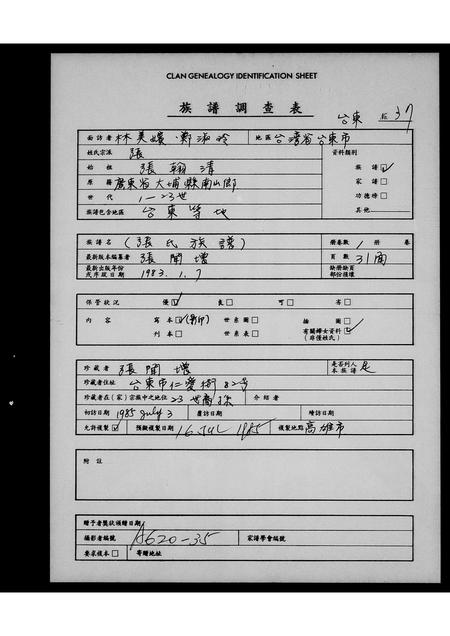 CLAN GENEALOGY IDENTIFICATION SHEET
族譜調查表
台東 37
面訪者 林美嬡·鄭海玲 地區 台灣省台東市
姓氏宗派 張 資料類別
始祖 張翰清 族譜☑
原籍 廣東省大埔縣南山鄉 家譜□
世代 1—23世 功德榜□
族譜包含地區 台東等地 其他
族譜名 (張氏族譜) 冊卷數 1 冊 卷
最新版本編纂者 張開增 頁數 31面
最新出版年份或序跋日期 1983.1.7 缺冊缺頁部份損壞
保管狀況 優☑ 良□ 可□ 劣□
內容 寫本☑(影印) 世系圖□ 插圖□
刊本□ 世系表□ 有關婦女資料☑(非僅姓氏)
珍藏者 張開增 是否列入本族譜 是
珍藏者住址 台東市仁愛街82号
珍藏者在(家)宗族中之地位 23世裔孫 介紹者
初訪日期 1985 July 3 覆訪日期 續訪日期
允許複製☑ 預擬複製日期 16 JUL 1985 複製地點 高雄市
附註
贈予者獎狀頒贈日期
攝影者編號 A620-35 家譜學會編號
要求複本□ 寄贈地址